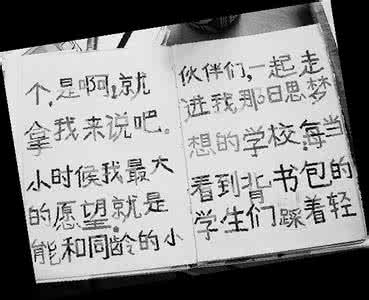 个,是啊,就
拿我来说吧。
小时候我最大
的愿望就是
能和同龄的小
伙伴们,一起走
进我那日思梦
想的学校每当
看到背书包的
学生们踩着轻